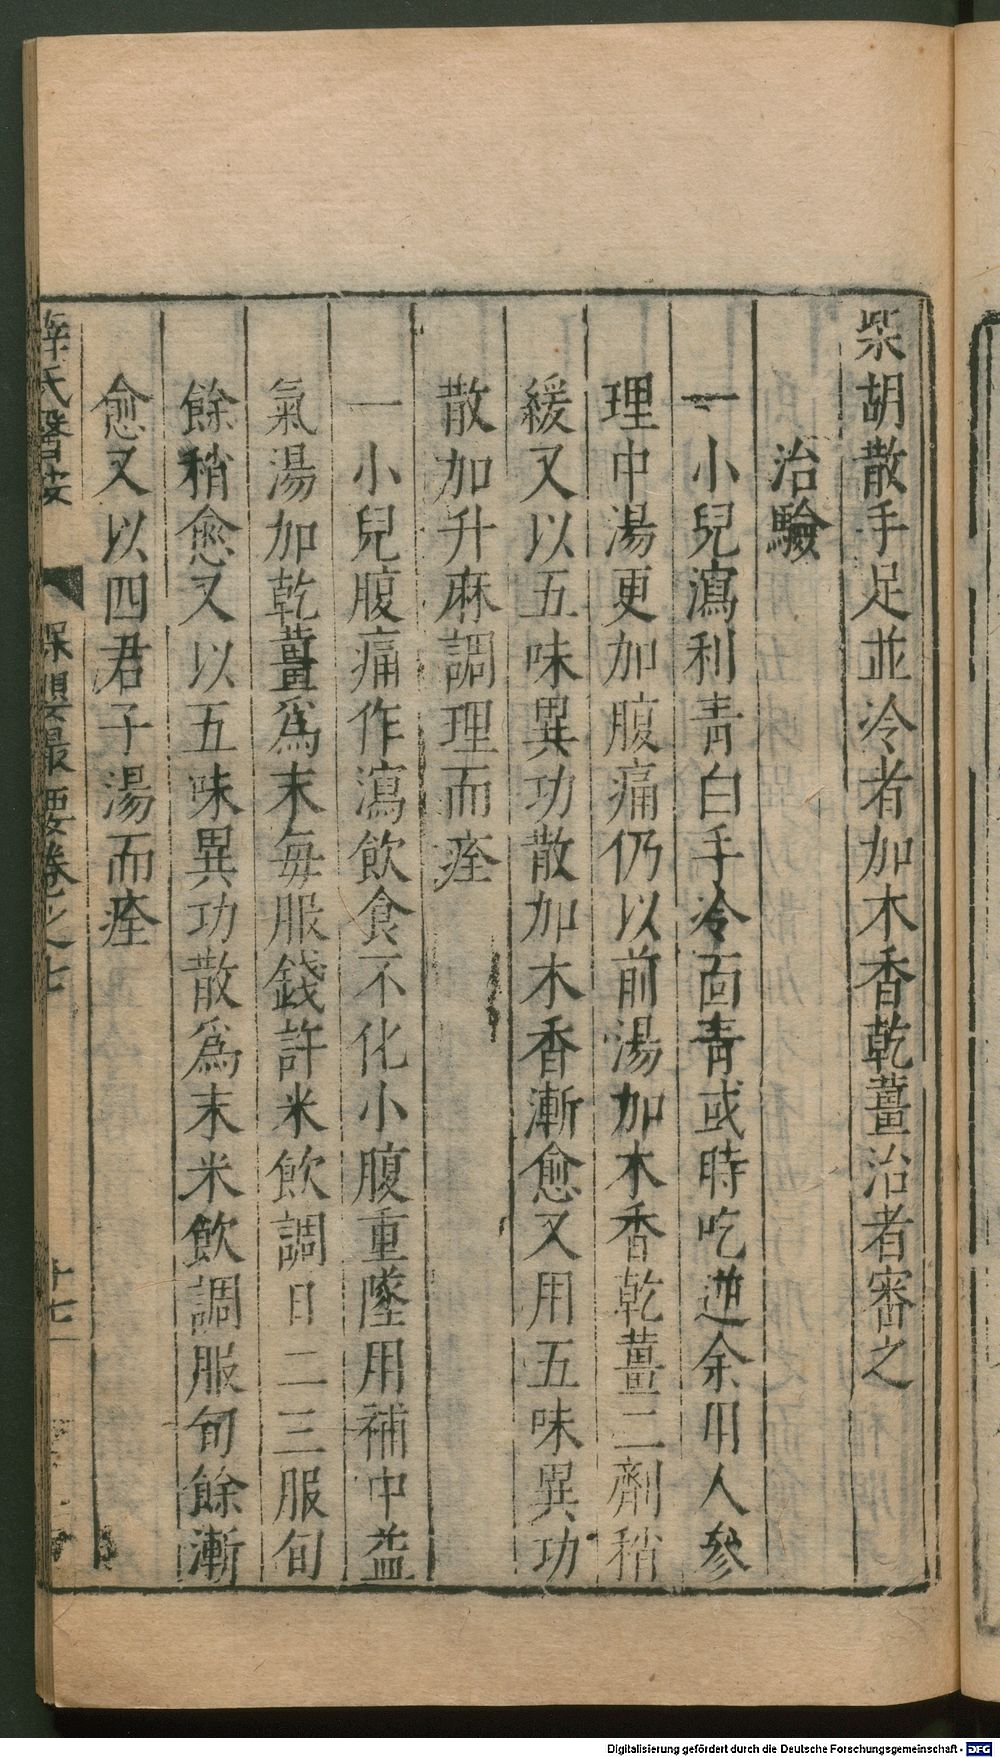 柴胡散手足並冷者加木香乾薑治者審之
治驗
一小兒瀉利青白手冷面青或時吃逆余用人參
理中湯更加腹痛仍以前湯加木香乾薑二劑稍
緩又以五味異功散加木香漸愈又用五味異功
散加升麻調理而痊
一小兒腹痛作瀉飲食不化小腹重墜用補中益
氣湯加乾薑爲末每服錢許米飲調日二三服旬
餘稍愈又以五味異功散爲末米飲調服旬餘漸
愈又以四君子湯而痊
薛氏醫按 保嬰撮要卷之七 十七
Digitalisierung gefördert durch die Deutsche Forschungsgemeinschaft - DFG